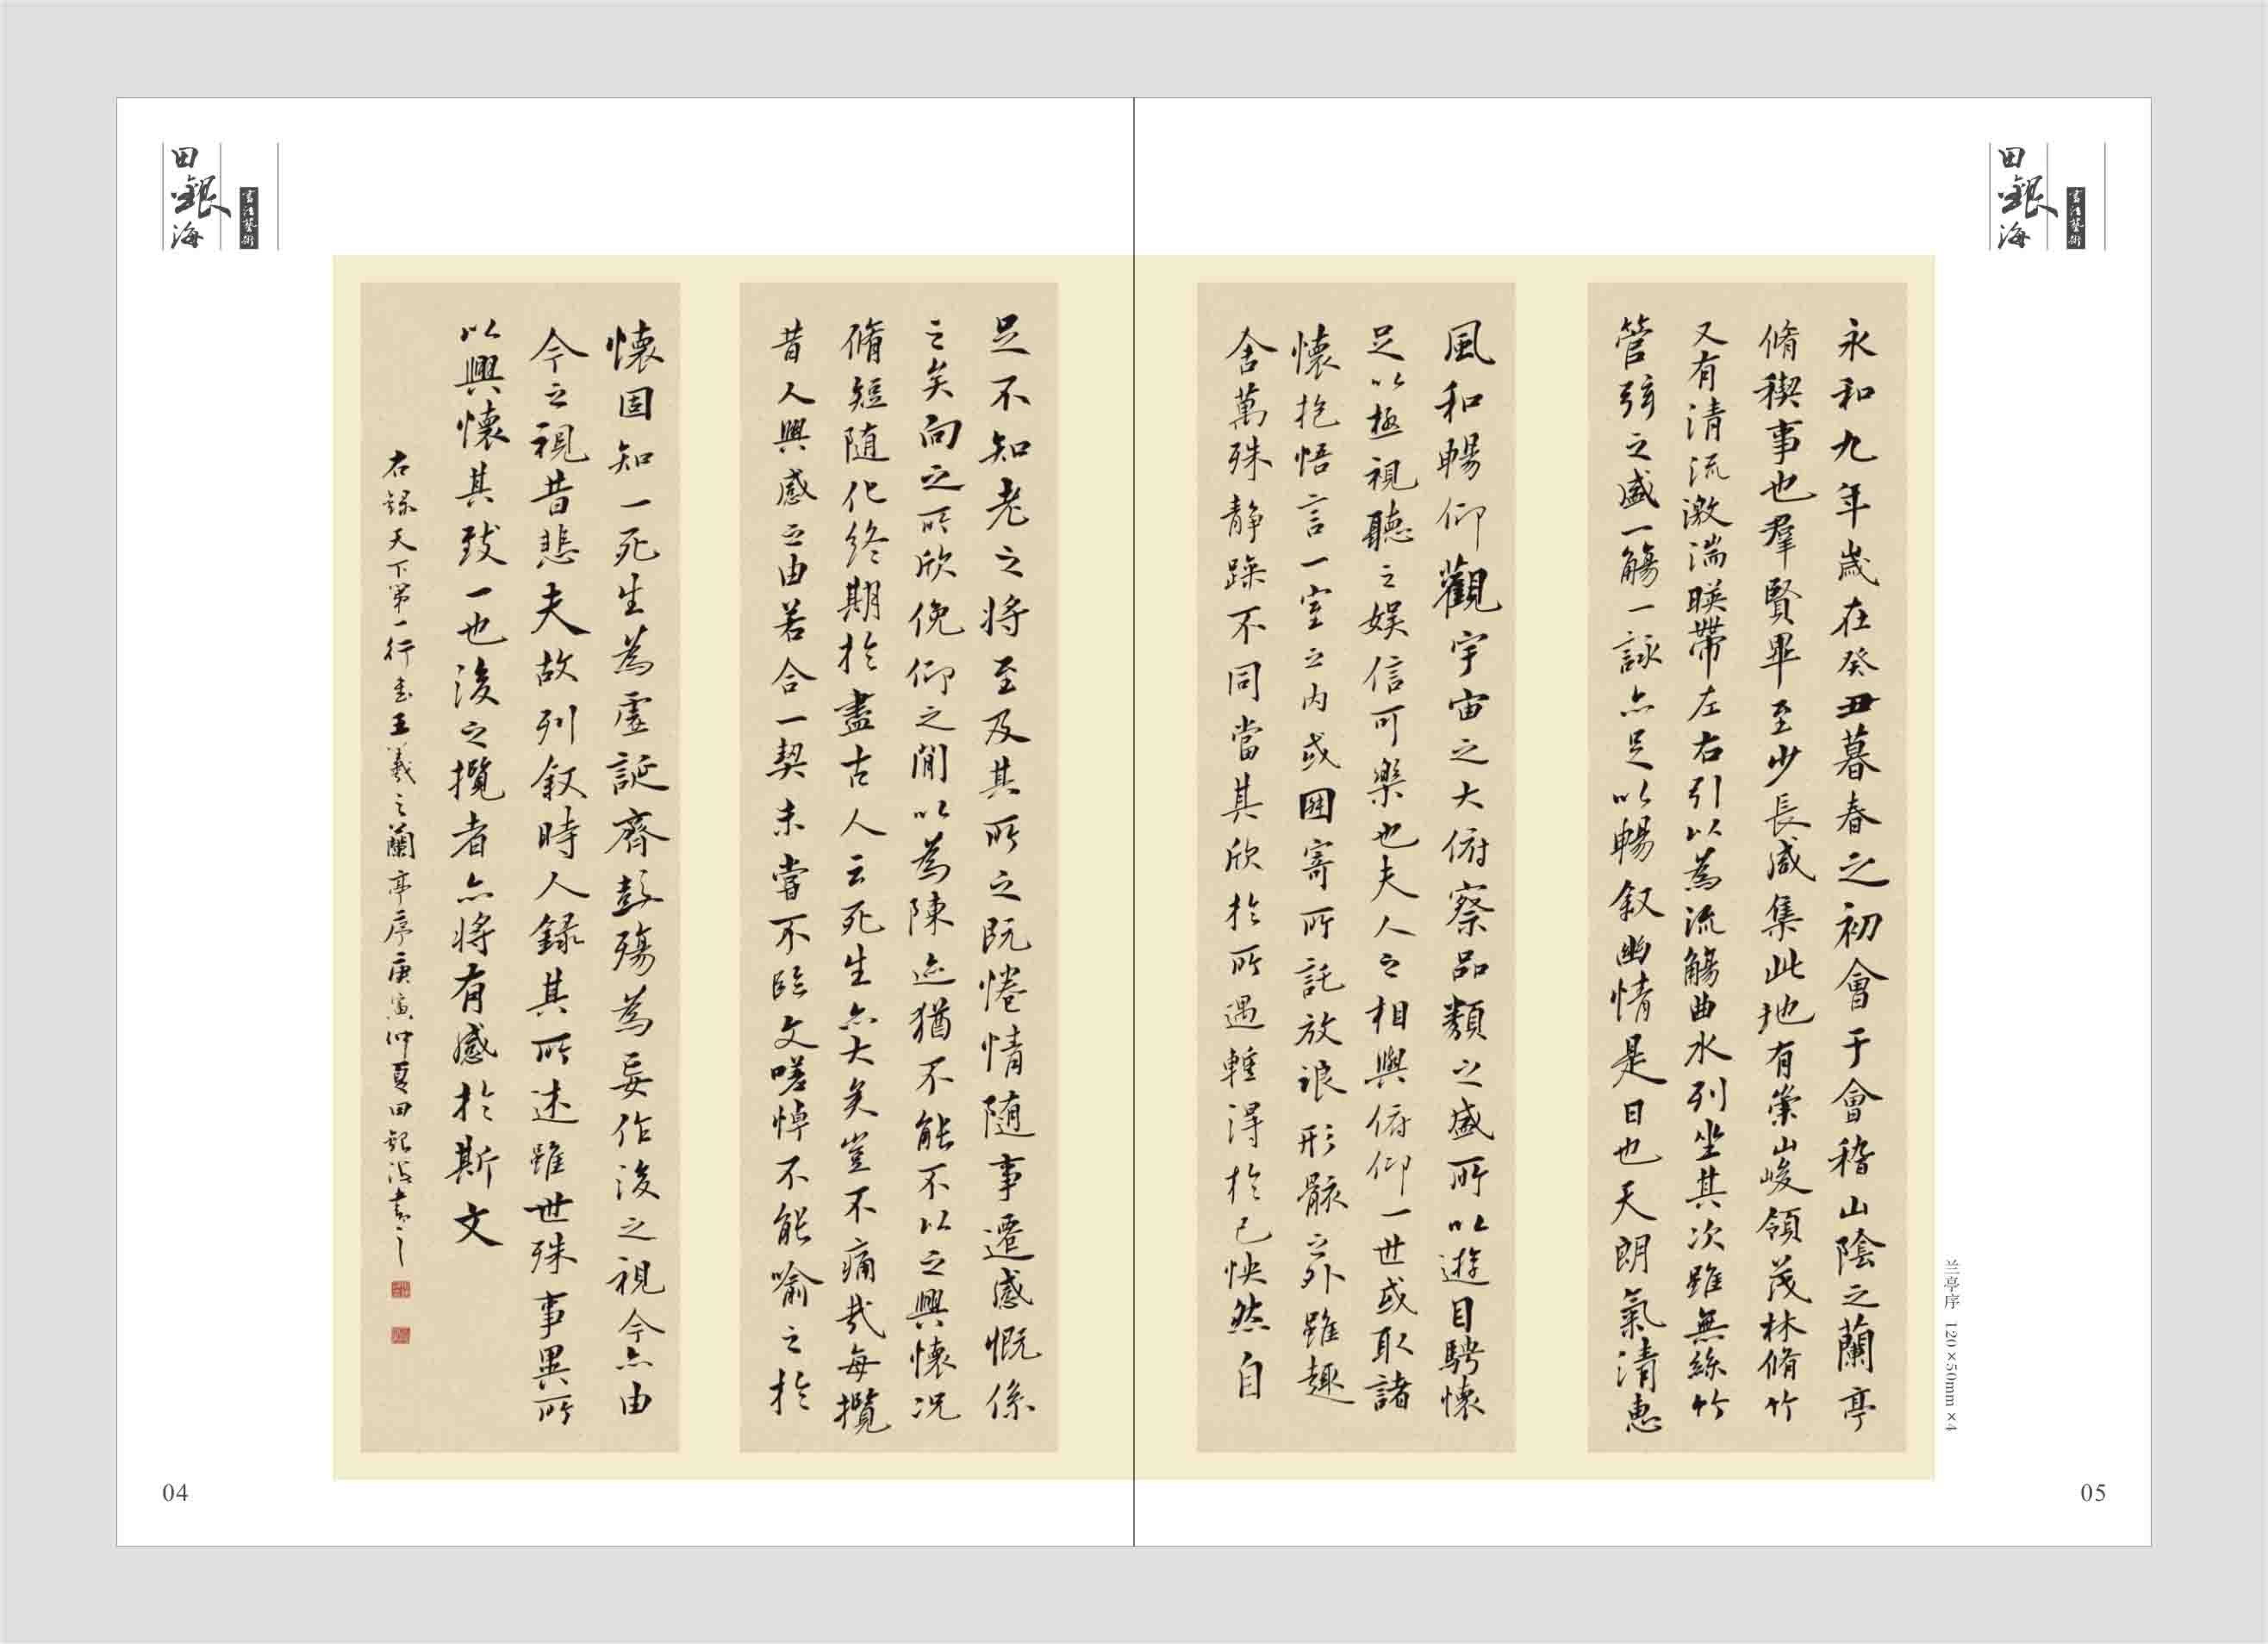 田銀海
書法藝術
田銀海
書法藝術
永和九年歲在癸丑暮春之初會于會稽山陰之蘭亭
脩稧事也羣賢畢至少長咸集此地有崇山峻領茂林脩竹
又有清流激湍暎帶左右引以為流觴曲水列坐其次雖無絲竹
管弦之盛一觴一詠亦足以暢叙幽情是日也天朗氣清惠
風和暢仰觀宇宙之大俯察品類之盛所以遊目騁懷
足以極視聽之娱信可樂也夫人之相與俯仰一世或取諸
懷抱悟言一室之内或因寄所託放浪形骸之外雖趣
舍萬殊静躁不同當其欣於所遇蹔得於己怏然自
足不知老之将至及其所之既惓情随事遷感慨係
之矣向之所欣俛仰之閒以為陳迹猶不能不以之興懷况
脩短随化終期於盡古人云死生亦大矣豈不痛哉每攬
昔人興感之由若合一契未嘗不臨文嗟悼不能喻之於
懷固知一死生為虛誕齊彭殤為妄作後之視今亦由
今之視昔悲夫故列叙時人録其所述雖世殊事異所
以興懷其致一也後之攬者亦将有感於斯文
右録天下第一行書王羲之蘭亭序庚寅仲夏田銀海書
兰亭序 120×50mm×4
04
05